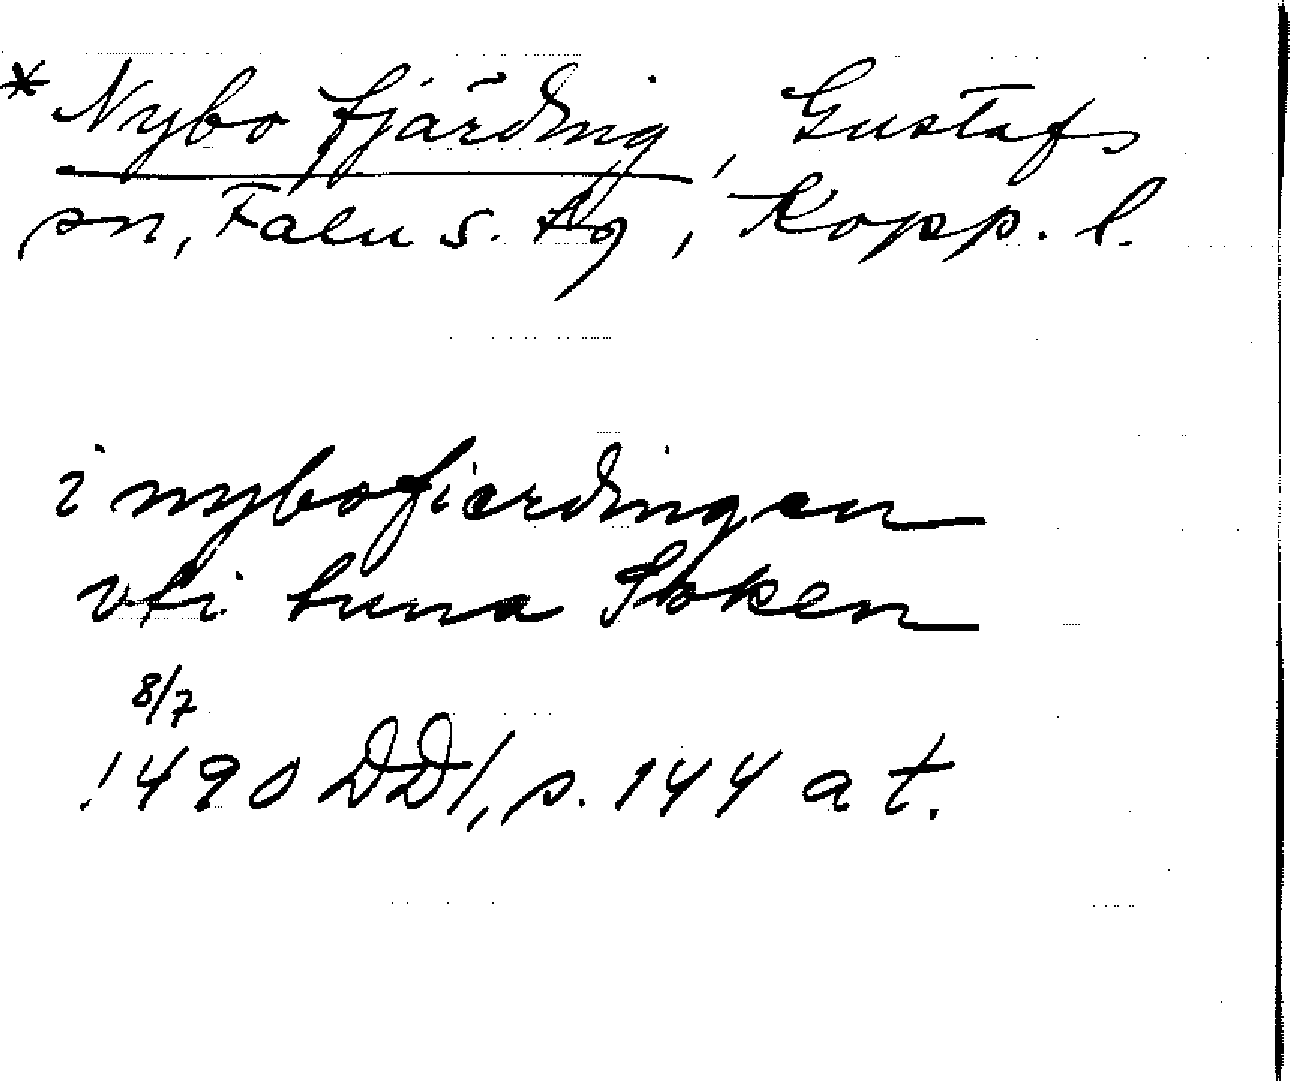 * Nybo fjärding, Gustafs
sn, Falu s. tg, Kopp. l.
i nybofiærdingen
vti tuna Soken
8/7
1490 DD 1, s. 144 at.